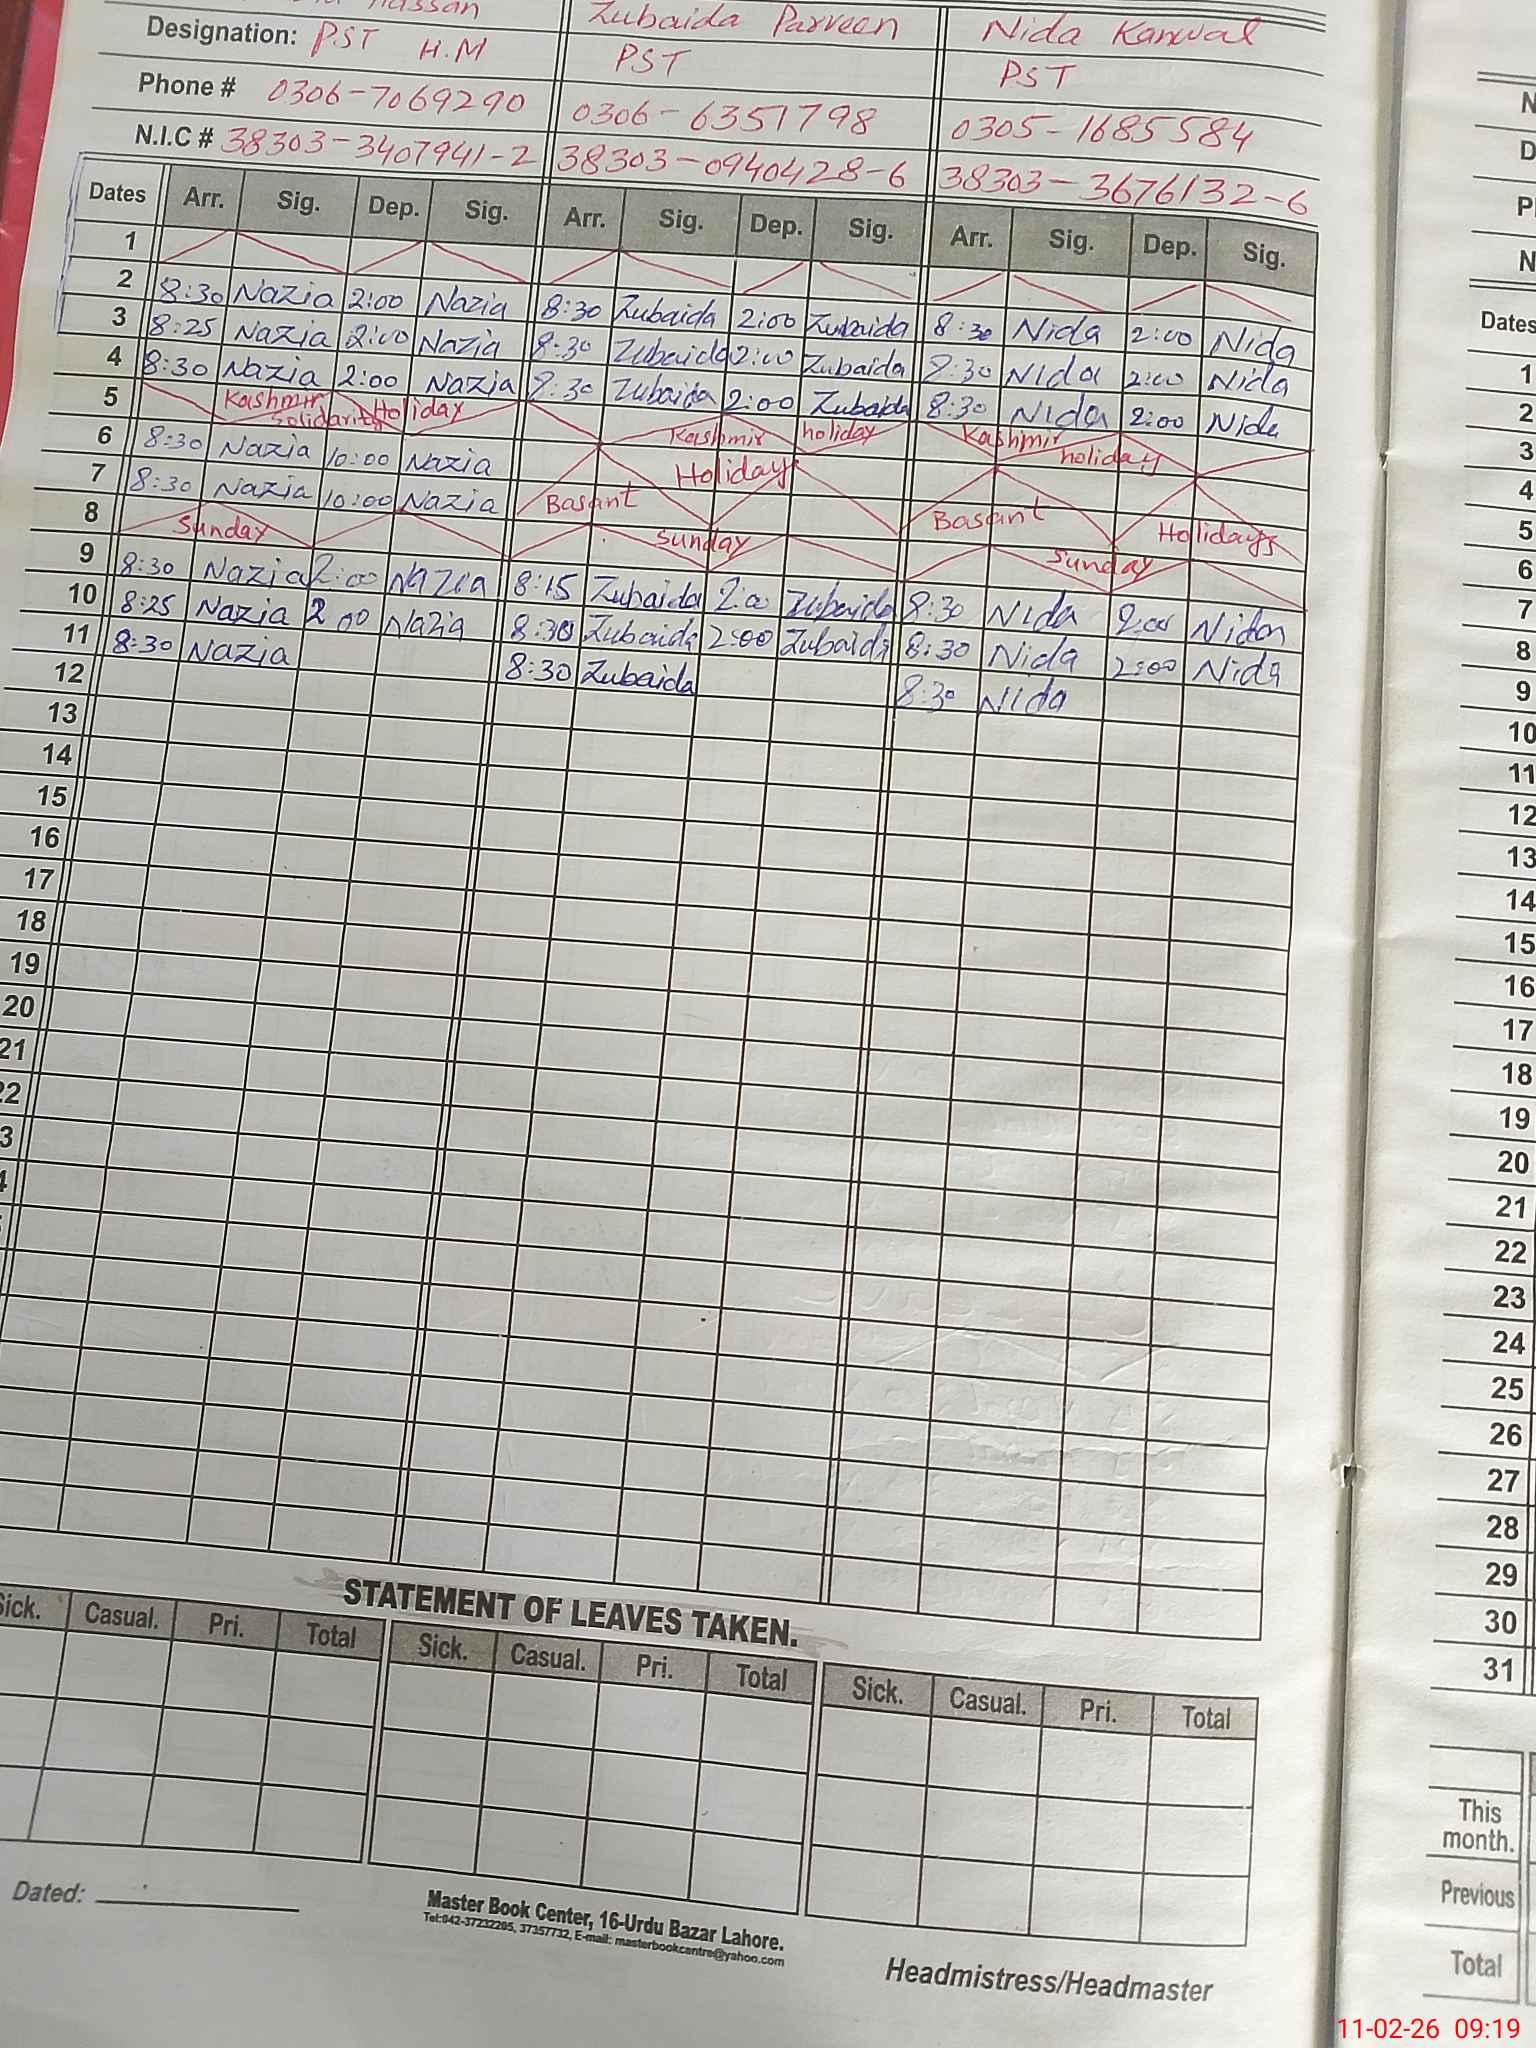 Hassan Zubaida Parveen Nida Kanwal
Designation: PST H.M PST PST
Phone # 0306-7069290 0306-6351798 0305-1685584
N.I.C # 38303-3407941-2 38303-0940428-6 38303-3676132-6
Dates Arr. Sig. Dep. Sig. Arr. Sig. Dep. Sig. Arr. Sig. Dep. Sig.
1
2 8:30 Nazia 2:00 Nazia 8:30 Zubaida 2:00 Zubaida 8:30 Nida 2:00 Nida
3 8:25 Nazia 2:00 Nazia 8:30 Zubaida 2:00 Zubaida 8:30 Nida 2:00 Nida
4 8:30 Nazia 2:00 Nazia 8:30 Zubaida 2:00 Zubaida 8:30 Nida 2:00 Nida
5 Kashmir Solidarity Holiday Kashmir holiday Kashmir holiday
6 8:30 Nazia 10:00 Nazia Holidays
7 8:30 Nazia 10:00 Nazia Basant Basant Holidays
8 Sunday Sunday Sunday
9 8:30 Nazia 2:00 Nazia 8:15 Zubaida 2:00 Zubaida 8:30 Nida 2:00 Nida
10 8:25 Nazia 2 00 Nazia 8:30 Zubaida 2:00 Zubaida 8:30 Nida 2:00 Nida
11 8:30 Nazia 8:30 Zubaida 8:30 Nida
12
13
14
15
16
17
18
19
20
21
22
3
4
STATEMENT OF LEAVES TAKEN.
Sick. Casual. Pri. Total Sick. Casual. Pri. Total Sick. Casual. Pri. Total
Dated:
Master Book Center, 16-Urdu Bazar Lahore.
Tel:042-37232205, 37357732, E-mail: masterbookcantre@yahoo.com
Headmistress/Headmaster
N
D
P
N
Dates
1
2
3
4
5
6
7
8
9
10
11
12
13
14
15
16
17
18
19
20
21
22
23
24
25
26
27
28
29
30
31
This
month.
Previous
Total
11-02-26 09:19